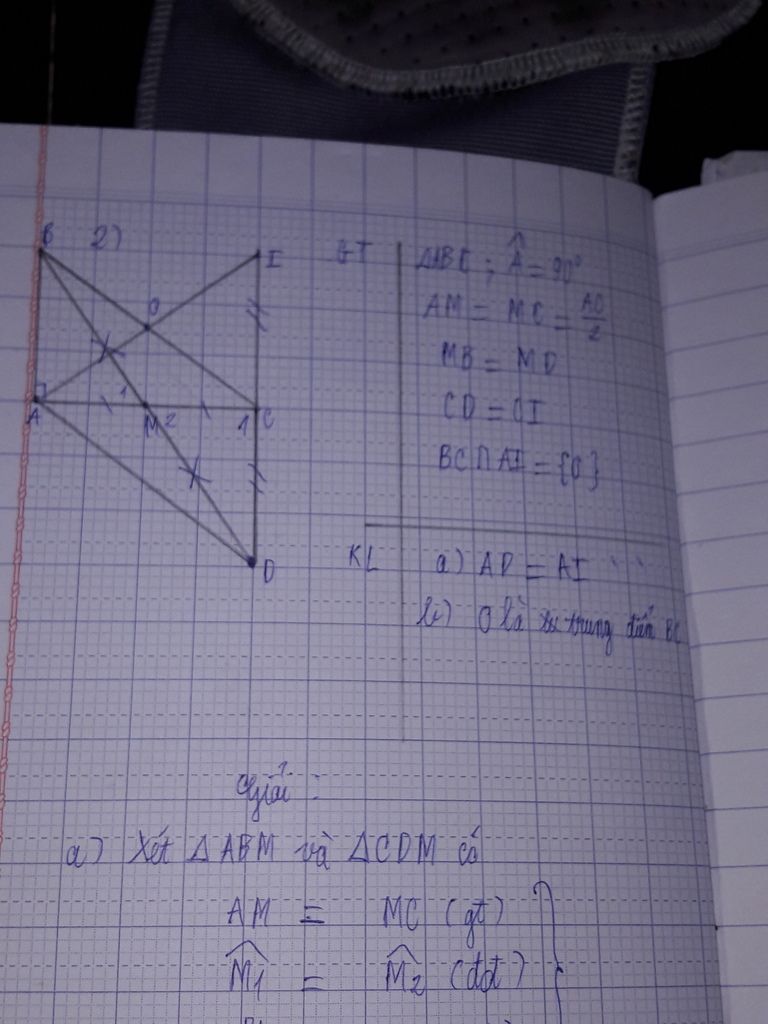 2)
B
I
O
A
1
M
2
1
C
D
GT
△ABC ; Â = 90°
AM = MC = AC/2
MB = MD
CD = CI
BC ∩ AI = {O}
KL
a) AD = AI
b) O là trung điểm BC
Giải :
a) Xét △ABM và △CDM có
AM = MC (gt)
M̂1 = M̂2 (đđ)